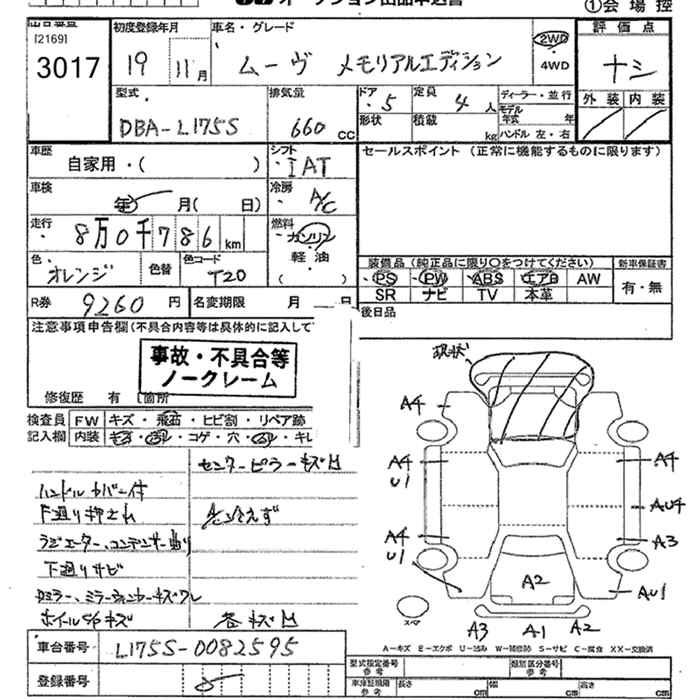 ①会場控
出品番号 [2169] 3017
初度登録年月 19 11月
車名・グレード ムーヴ メモリアルエディション
2WD
4WD
評価点 ナシ
外装 内装
型式 DBA-L175S
排気量 660 CC
ドア・ 5
形状
定員 4 人
積載 kg
ディーラー・並行
モデル年式 年
ハンドル 左・右
車歴 自家用・( )
シフト・ IAT
セールスポイント (正常に機能するものに限ります)
車検 年 月( 日)
冷房・ A/C
走行・ 8万0千786 km
燃料・ ガソリン
軽・油
( )
色・ オレンジ
色替
色コード T20
装備品(純正品に限り○をつけてください)
・PS ・PW ・ABS ・エアB AW
SR ナビ TV 本革
新車保証書
有・無
R券 9260 円
名変期限 月 日
後日品
注意事項申告欄(不具合内容等は具体的に記入して
事故・不具合等
ノークレーム
修復歴 有 [箇所
検査員記入欄
FW キズ・飛石・ヒビ割・リペア跡
内装 キズ・汚レ・コゲ・穴・スレ・キレ
センターピラーキズ凹
ハンドルカバー付
下廻り押され
A/C冷えず
ラジエーター、コンデンサー曲り
下廻りサビ
Dミラー、ミラーウィンカーキズワレ
ホイールCPキズ
各キズ凹
現状
A4
A4 U1
A4
AU4
A4 U1
A3
AU1
A2
スペア
A3 A1 A2
A-キズ E-エクボ U-凹み W-補修跡 S-サビ C-腐食 XX-交換済
車台番号 L175S-0082595
登録番号
型式指定番号 参考
類別区分番号 参考
車庫証明用 参考 長さ cm 幅 cm 高さ cm